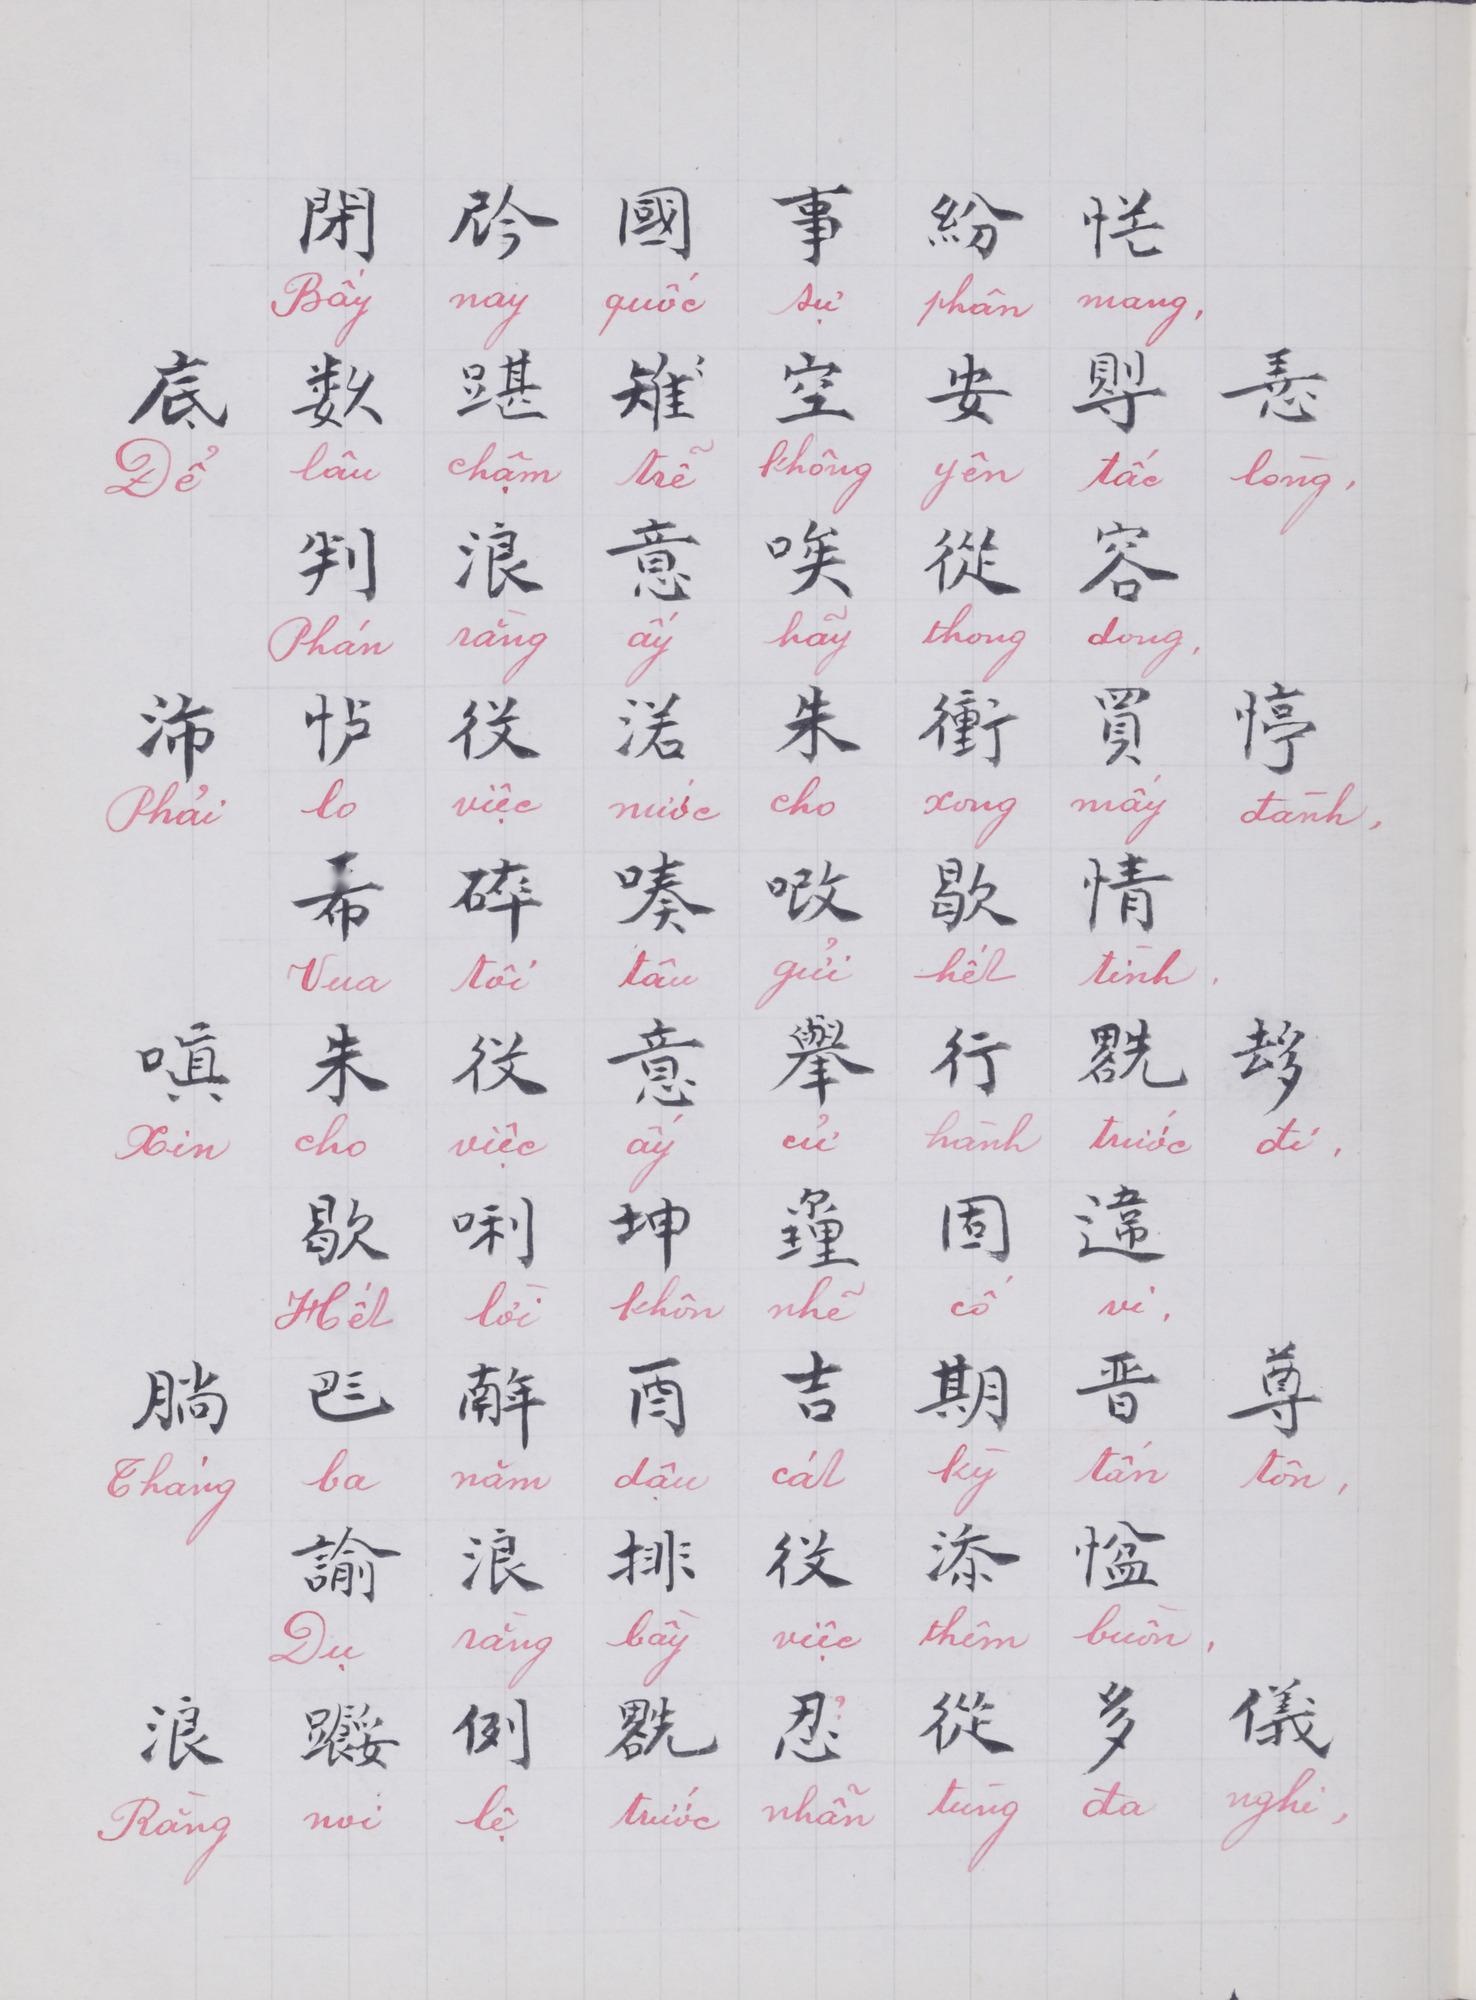 閉 𫢩 國 事 紛 恾
Bấy nay quốc sự phân mang,
底 数 踸 雉 空 安 㝵 悬
Để lâu chậm trễ không yên tấc lòng,
判 浪 意 唉 從 容
Phán rằng ấy hãy thong dong,
沛 𢗼 役 渃 朱 衝 買 停
Phải lo việc nước cho xong mấy đành,
希 碎 嗪 㖫 歇 情
Vua tôi tâu gửi hết tình,
嗔 朱 役 意 舉 行 𠓀 𠫾
Xin cho việc ấy cử hành trước đi,
歇 唎 坤 𨤵 固 違
Hết lời khôn nhẽ cố vi,
𣎃 𠀧 𢆥 酉 吉 期 晋 尊
Tháng ba năm dậu cát kỳ tấn tôn,
諭 浪 排 役 添 㥪
Dụ rằng bầy việc thêm buồn,
浪 𨀈 例 𠓀 忍 從 多 儀
Rằng noi lệ trước nhẫn tùng đa nghi,